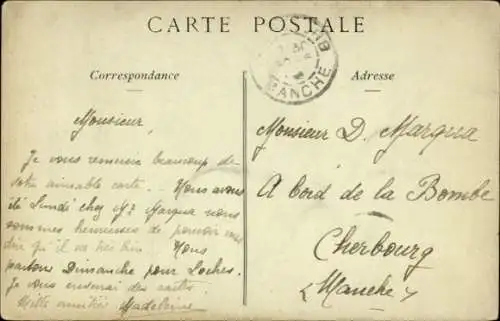 CARTE POSTALE
Correspondance
Monsieur,
Je vous remercie beaucoup de
votre aimable carte. Nous avons
été Lundi chez Mr Margua nous
sommes heureuses de pouvoir vous
dire qu'il va très bien. Nous
partons Dimanche pour Loches.
Je vous enverrai des cartes.
Mille amitiés Madeleine
MANCHE
Adresse
Monsieur D. Margua
A bord de la Bombe
Cherbourg
(Manche)